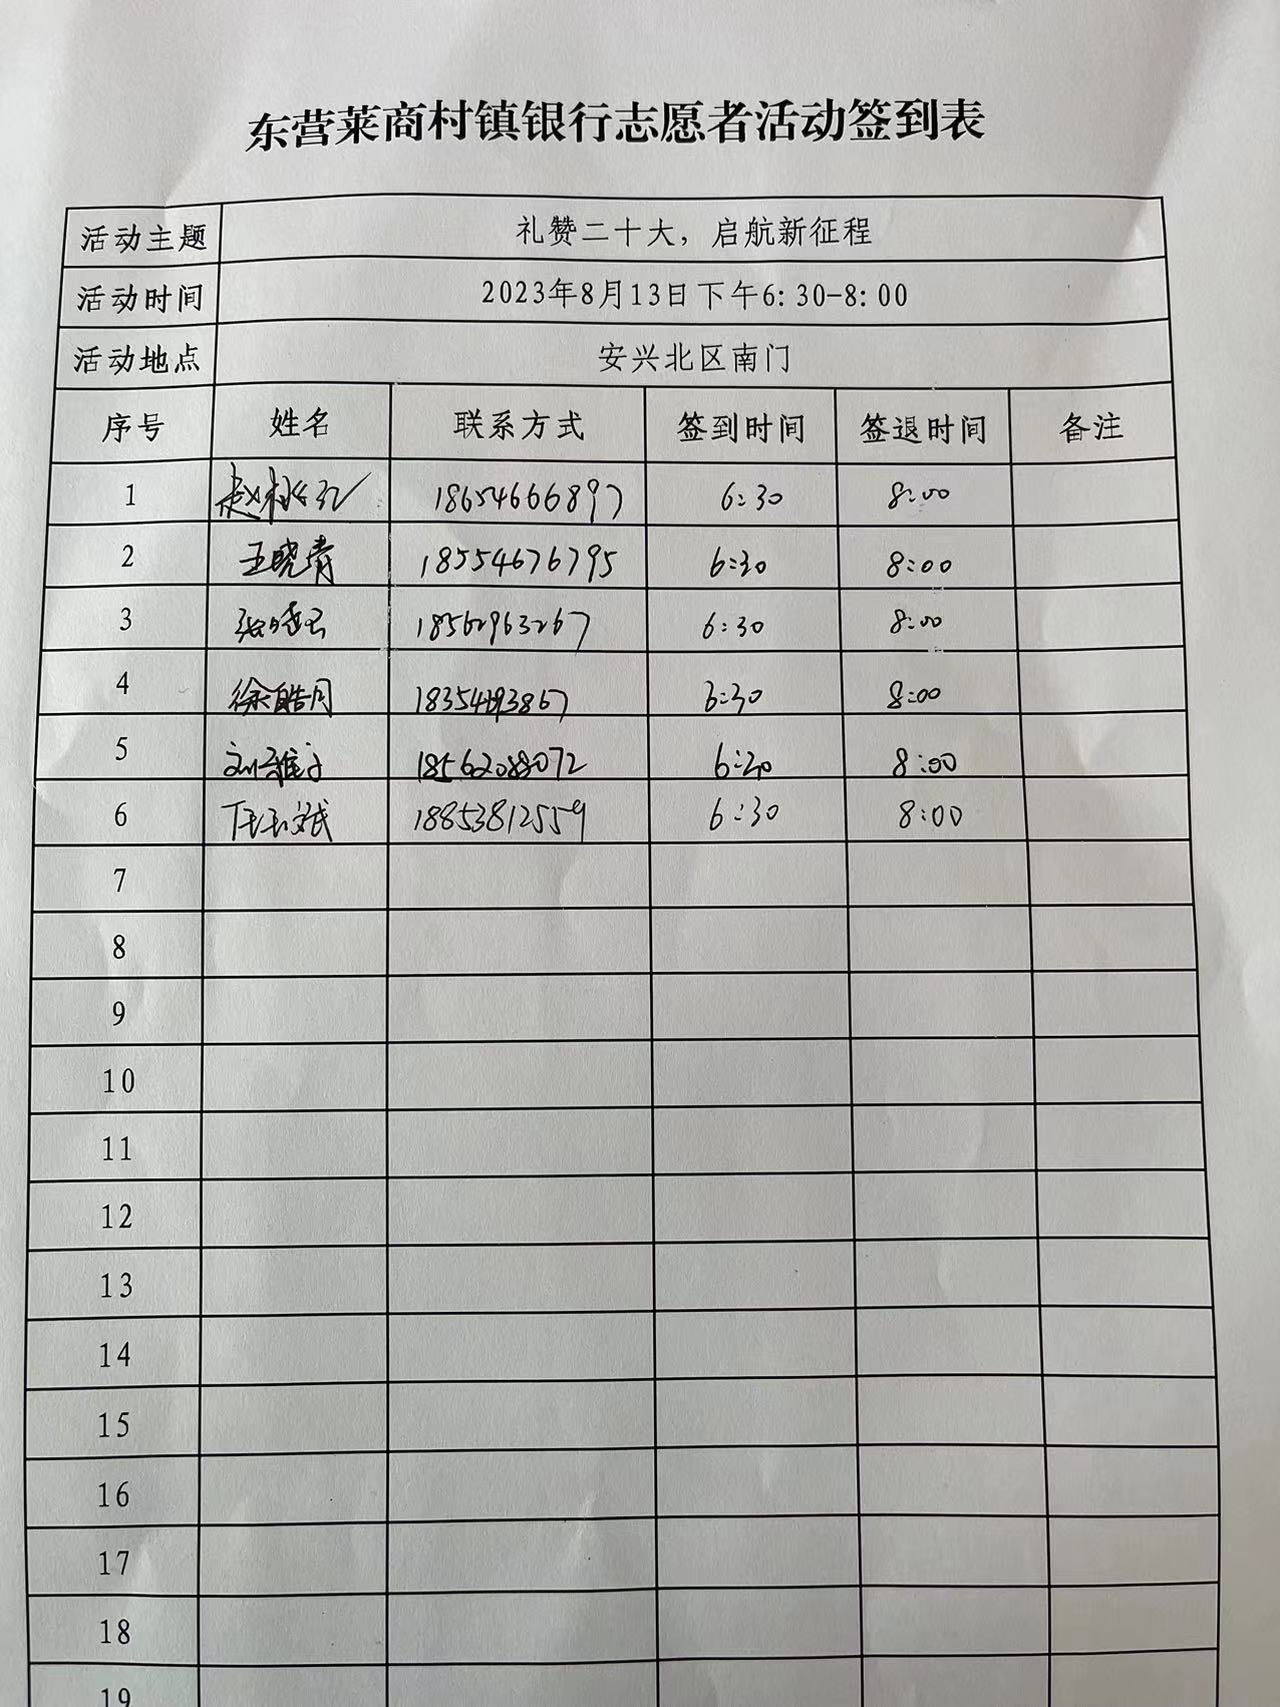 东营莱商村镇银行志愿者活动签到表
活动主题 礼赞二十大，启航新征程
活动时间 2023年8月13日下午6：30-8：00
活动地点 安兴北区南门
序号 姓名 联系方式 签到时间 签退时间 备注
1 18654666897 6:30 8:00
2 王晓青 18554676795 6:30 8:00
3 18562963267 6:30 8:00
4 徐皓月 6:30 8:00
5 8:00
6 18853812559 6:30 8:00
7
8
9
10
11
12
13
14
15
16
17
18
19